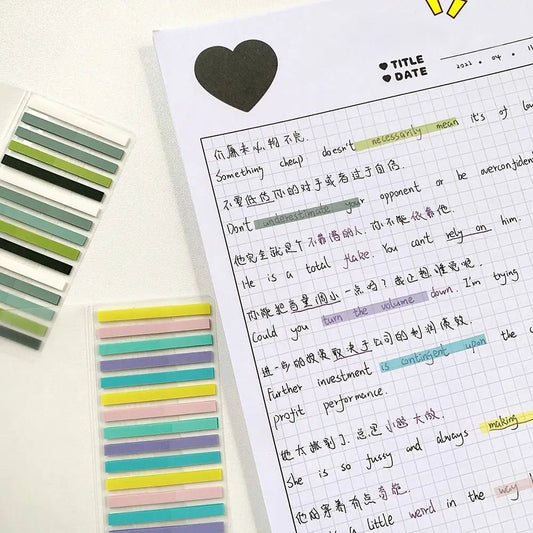 TITLE
DATE 2022 · 04 · 11
价廉未必物不完.
Something cheap doesn't necessarily mean it's of low
不要低估你的对手或者过于自信.
Don't underestimate your opponent or be overconfident
他完全就是个不靠谱的人. 你不能依靠他.
He is a total flake. You can't rely on him.
你能把音量调小一点吗? 我正想睡觉呢.
Could you turn the volume down. I'm trying
进一步的投资取决于公司的利润绩效.
Further investment is contingent upon the
profit performance.
她太挑剔了. 总是小题大做.
She is so fussy and always making
他的穿着有点奇葩.
a little weird in the way